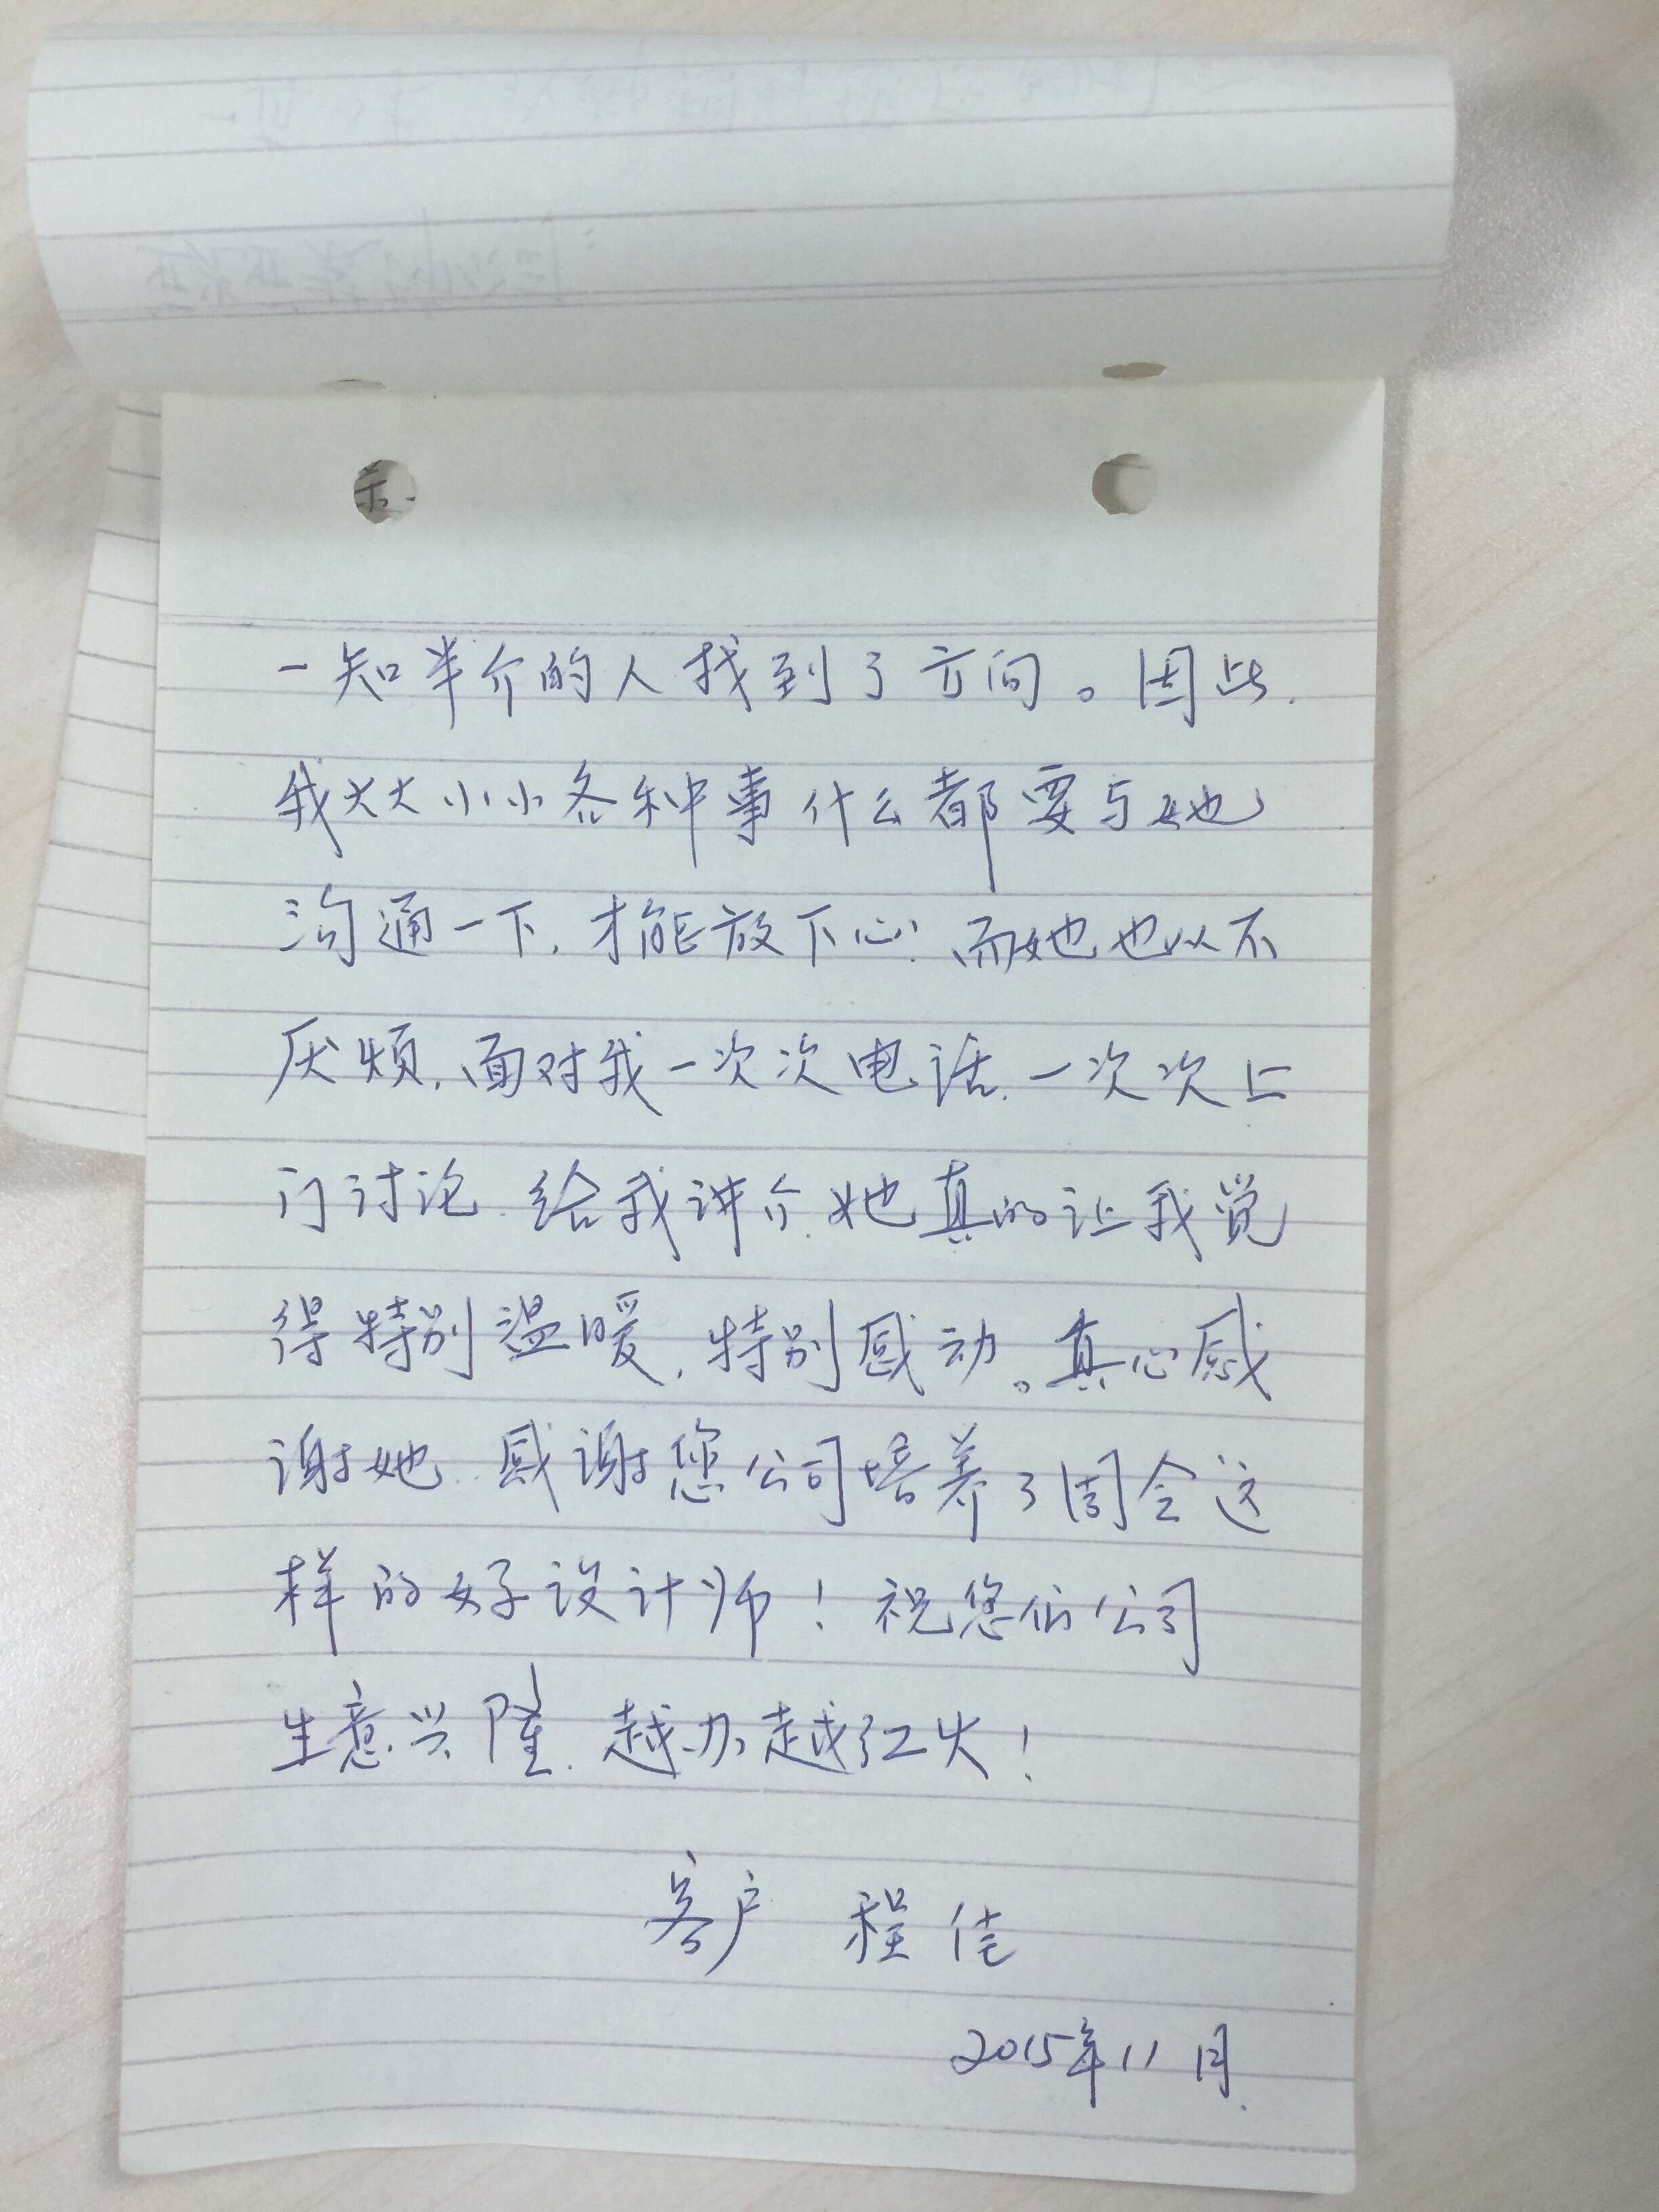 一知半介的人找到了方向。因此.
我大大小小各种事什么都要与她
沟通一下,才能放下心.而她也从不
厌烦,面对我一次次电话.一次次上
门讨论.给我讲介.她真的让我觉
得特别温暖,特别感动。真心感
谢她.感谢您公司培养了周会这
样的好设计师!祝您们公司
生意兴隆.越办越红火!
客户 程佳
2015年11月.